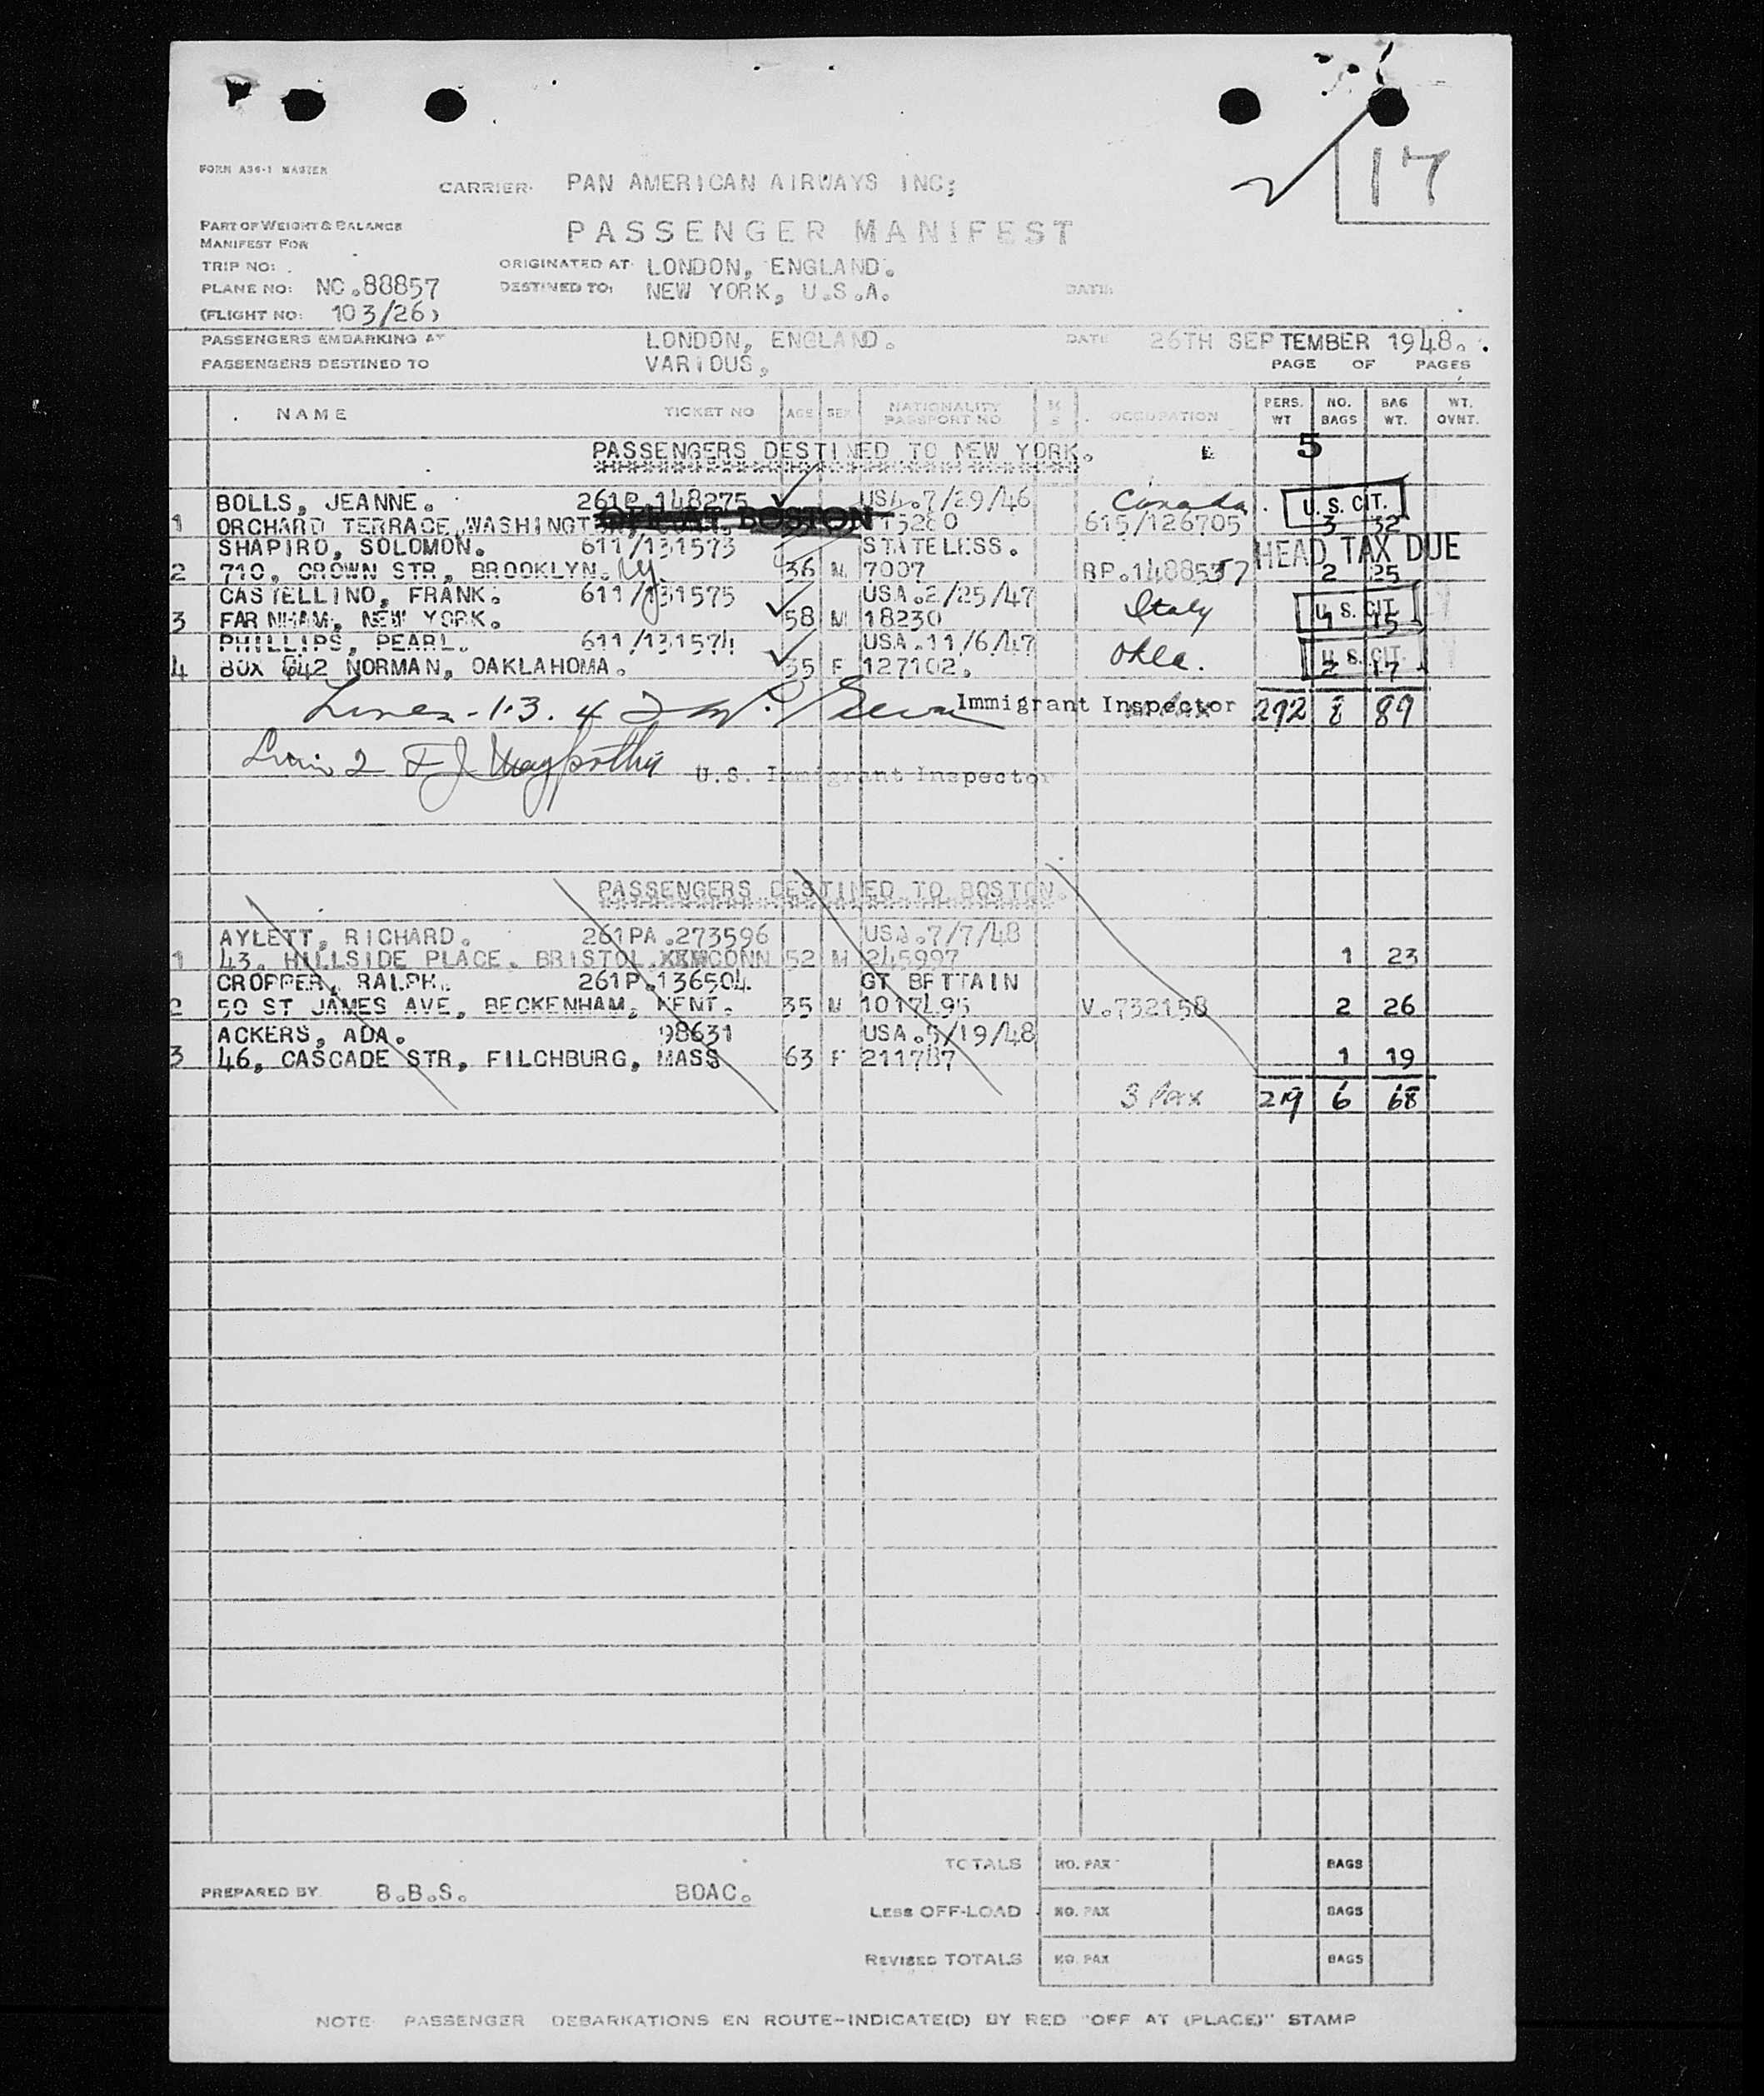 17
FORM A36-1 MASTER
CARRIER- PAN AMERICAN AIRWAYS INC;
PART OF WEIGHT & BALANCE
MANIFEST FOR
PASSENGER MANIFEST
TRIP NO:
ORIGINATED AT LONDON, ENGLAND.
PLANE NO: NC.88857
DESTINED TO: NEW YORK, U.S.A. DATE:
(FLIGHT NO: 103/26)
PASSENGERS EMBARKING AT LONDON, ENGLAND. DATE 26TH SEPTEMBER 1948.
PASSENGERS DESTINED TO VARIOUS, PAGE OF PAGES
NAME TICKET NO AGE SEX NATIONALITY PASSPORT NO. M S OCCUPATION PERS. WT NO. BAGS BAG WT. WT. OVNT.
PASSENGERS DESTINED TO NEW YORK. 5
BOLLS, JEANNE. 261P.148275 USA.7/29/46 Canada U. S. CIT.
1 ORCHARD TERRACE, OFF AT BOSTON 615/126705 3 32
SHAPIRO, SOLOMON. 611/131573 STATELESS. HEAD TAX DUE
2 710, CROWN STR, BROOKLYN. 36 M 7007 RP.1488557 2 25
CASTELLINO, FRANK. 611/131575 USA.2/25/47 Italy U. S. CIT.
3 FARNHAM, NEW YORK. 58 M 18230 1 15
PHILLIPS, PEARL. 611/131574 USA.11/6/47 Okla. U. S. CIT.
4 BOX 642 NORMAN, OAKLAHOMA. 35 F 127102. 2 17
Lines - 1.3. 4 Immigrant Inspector 292 8 89
Line 2 U.S. Immigrant Inspector
PASSENGERS DESTINED TO BOSTON.
AYLETT, RICHARD. 261PA.273596 USA.7/7/48
1 43, HILLSIDE PLACE. BRISTOL. CONN 52 M 245997 1 23
CROPPER, RALPH. 261P.136504 GT BRTTAIN
2 50 ST JAMES AVE, BECKENHAM, KENT. 35 M 1017495 V.732158 2 26
ACKERS, ADA. 98631 USA.5/19/48
3 46, CASCADE STR, FILCHBURG, MASS 63 F 211787 1 19
3 PAX 219 6 68
TOTALS NO. PAX BAGS
PREPARED BY B.B.S. BOAC.
LESS OFF-LOAD NO. PAX BAGS
REVISED TOTALS NO. PAX BAGS
NOTE PASSENGER DEBARKATIONS EN ROUTE-INDICATE(D) BY RED "OFF AT (PLACE)" STAMP